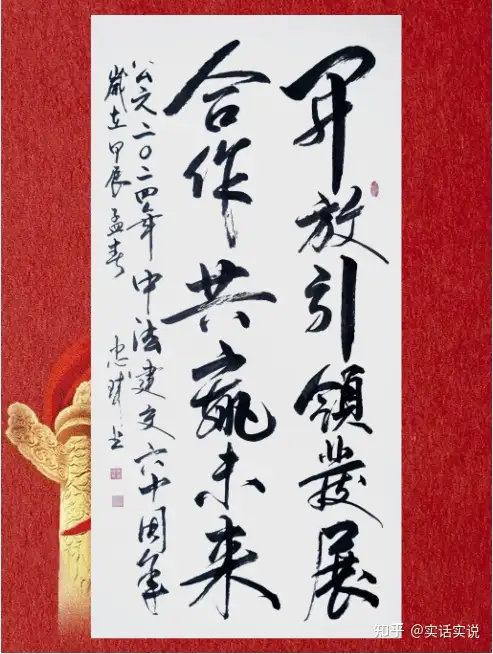 開放引領發展
合作共贏未来
公元二〇二四年中法建交六十周年
歲在甲辰孟春 忠
知乎 @实话实说